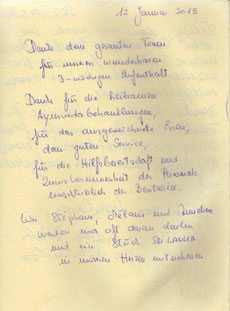 12 Januar 2015
Danke dem gesamten Team
für unseren wunderbaren
3-wöchigen Aufenthalt
Danke für die heilsamen
Ayurvedabehandlungen,
für das ausgezeichnete Essen,
den guten Service,
für die Hilfsbereitschaft und
Zuvorkommenheit des Personals
einschließlich der
Wir Stéphane, Mélanie und
werden noch oft daran denken
und ein Stück SRI LANKA
in unseren Herzen mitnehmen